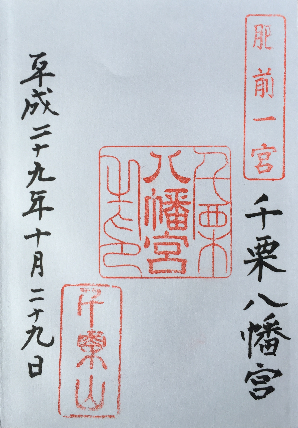 肥前一宮
千栗八幡宮
千栗八幡宮之印
千栗山
平成二十九年十月二十九日